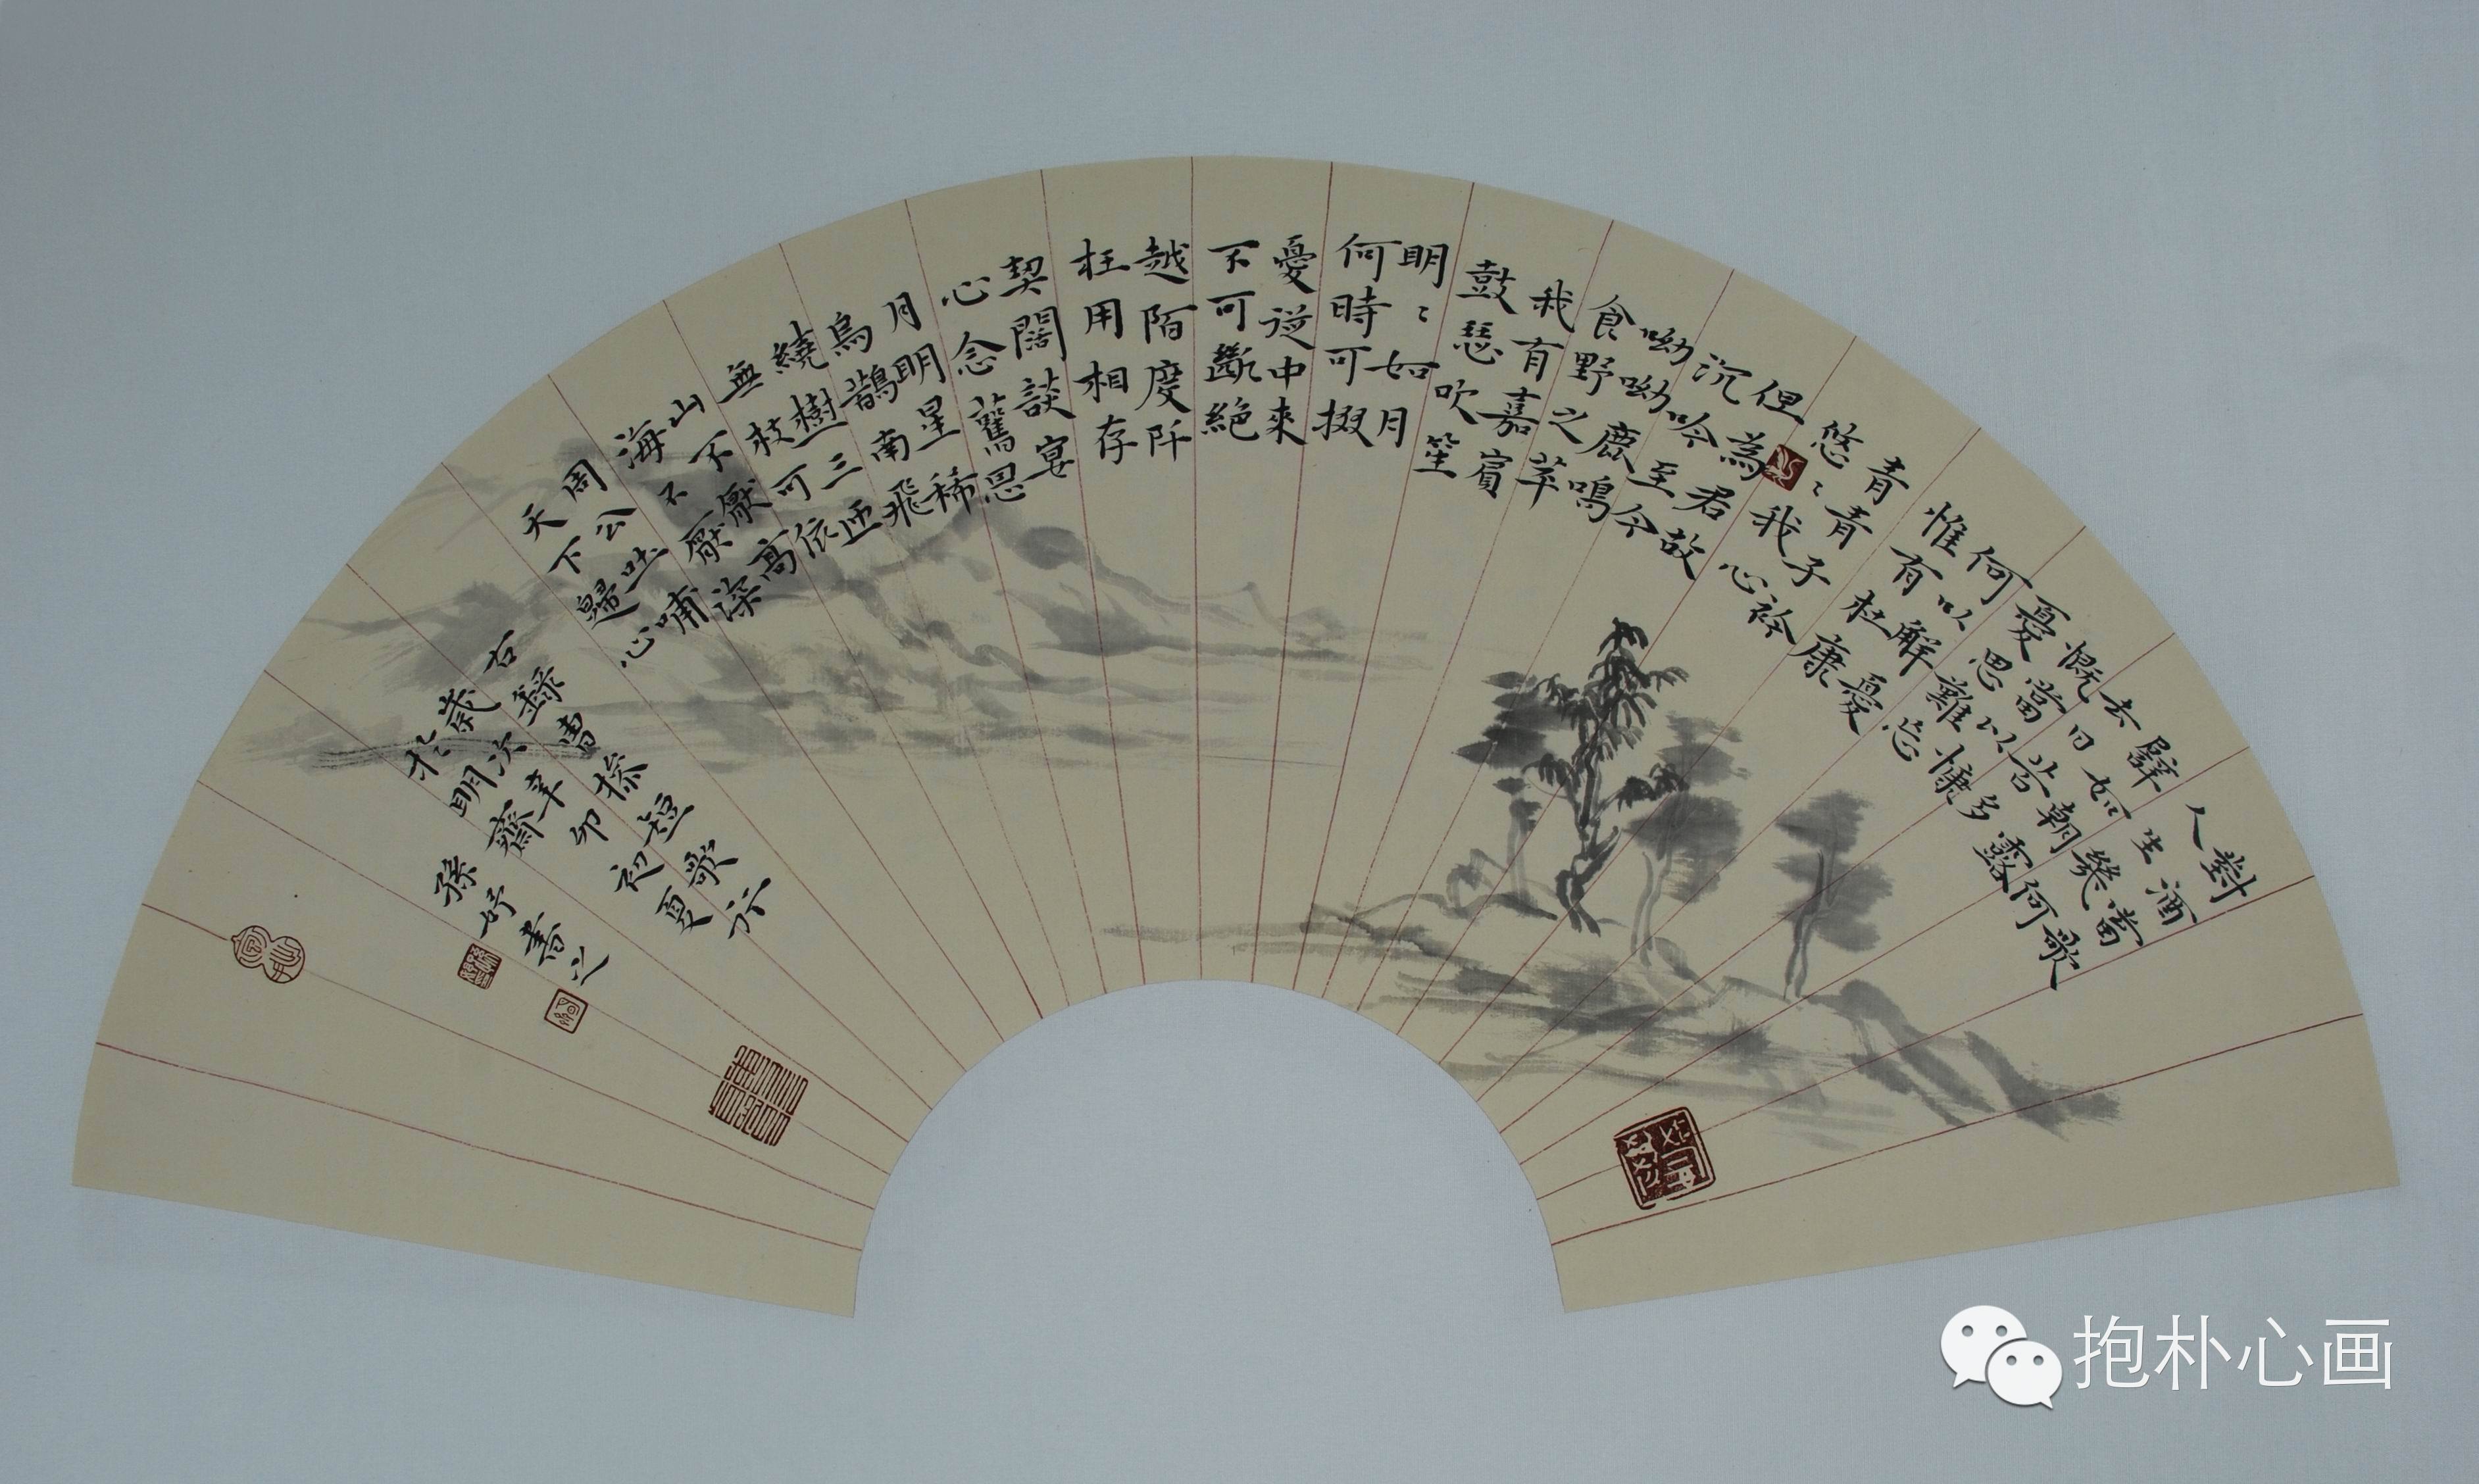 對酒當歌
人生幾何
譬如朝露
去日苦多
慨當以慷
憂思難忘
何以解憂
惟有杜康
青青子衿
悠〻我心
但為君故
沉吟至今
呦呦鹿鳴
食野之苹
我有嘉賓
鼓瑟吹笙
明〻如月
何時可掇
憂從中來
不可斷絕
越陌度阡
枉用相存
契闊談宴
心念舊恩
月明星稀
烏鵲南飛
繞樹三匝
無枝可依
山不厭高
海不厭深
周公吐哺
天下歸心
右錄曹操短歌行
歲次辛卯初夏
於明齋
孫婷書之
抱朴心画